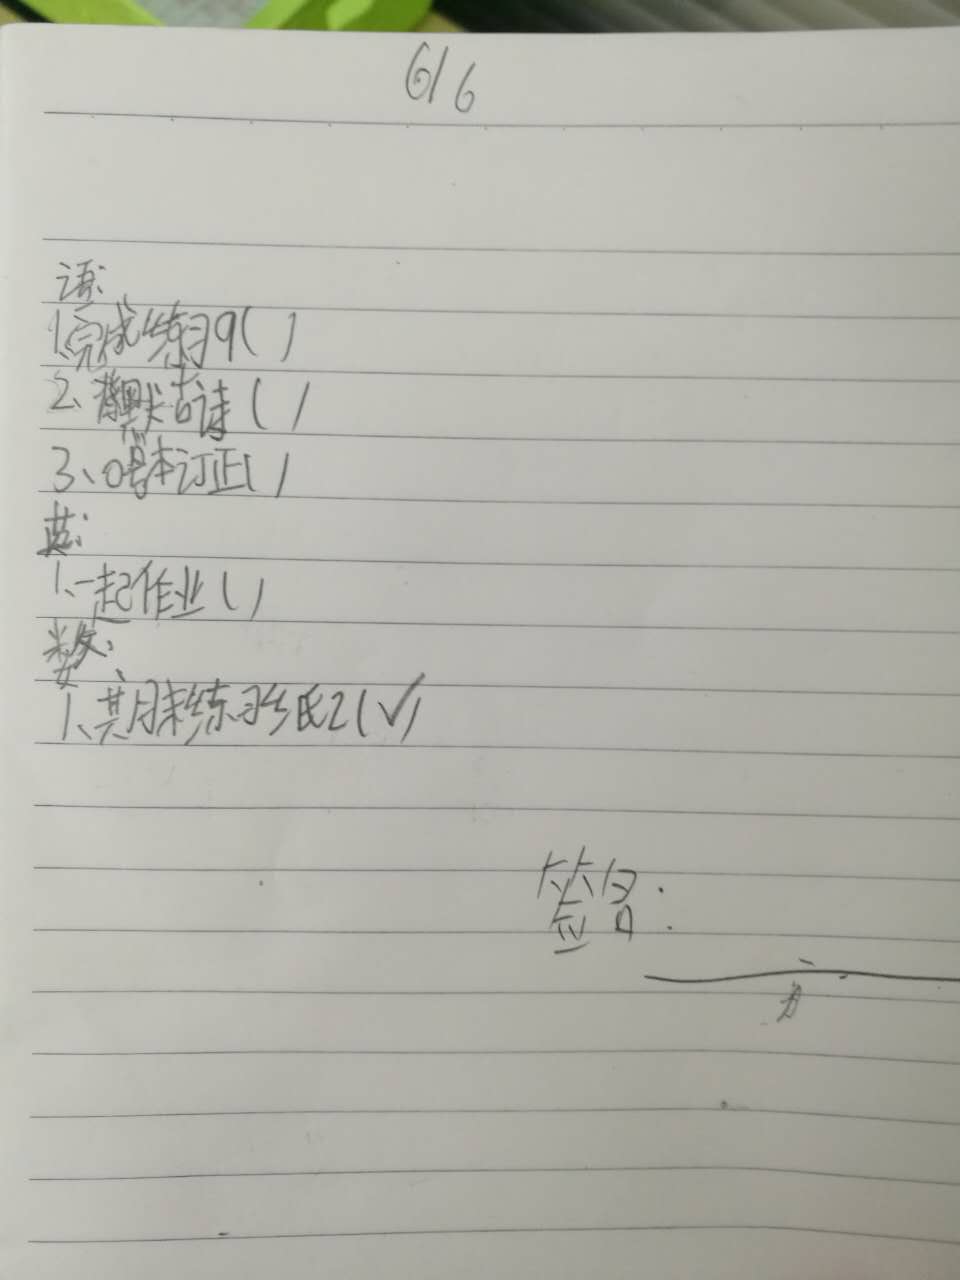 6/6
语:
1、完成练习9( )
2、背默古诗( )
3、口易本订正( )
英:
1、一起作业( )
数:
1、其月末练习纸2(√)
签名: